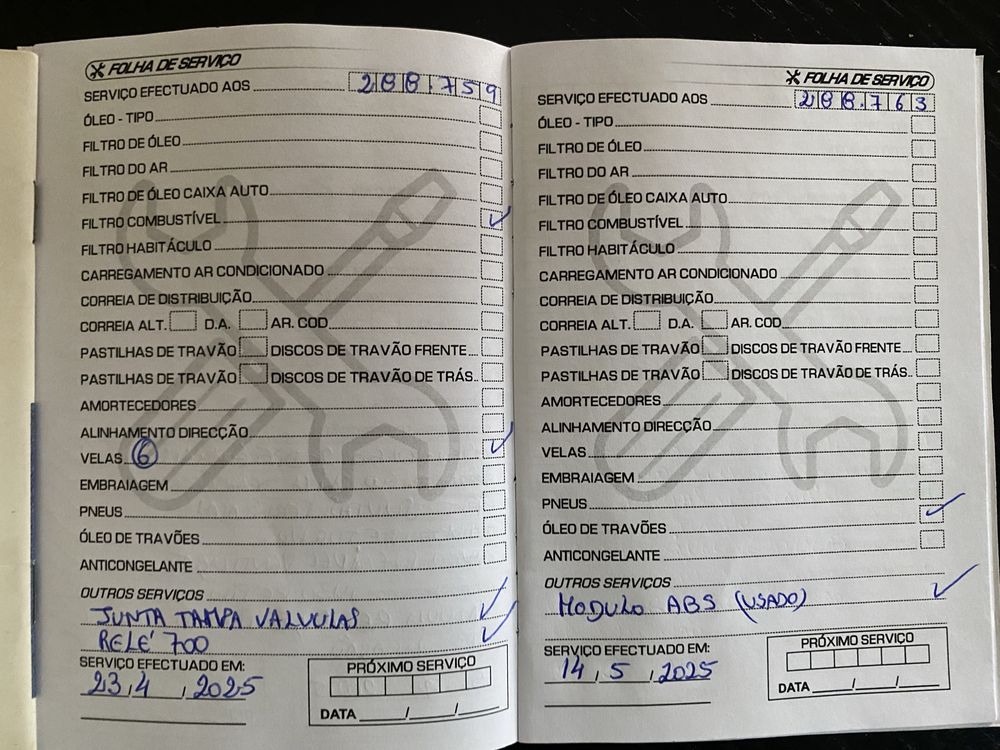 FOLHA DE SERVIÇO
SERVIÇO EFECTUADO AOS 288.759
ÓLEO - TIPO
FILTRO DE ÓLEO
FILTRO DO AR
FILTRO DE ÓLEO CAIXA AUTO
FILTRO COMBUSTÍVEL ✓
FILTRO HABITÁCULO
CARREGAMENTO AR CONDICIONADO
CORREIA DE DISTRIBUIÇÃO
CORREIA ALT. D.A. AR. COD
PASTILHAS DE TRAVÃO DISCOS DE TRAVÃO FRENTE
PASTILHAS DE TRAVÃO DISCOS DE TRAVÃO DE TRÁS
AMORTECEDORES
ALINHAMENTO DIRECÇÃO
VELAS 6 ✓
EMBRAIAGEM
PNEUS
ÓLEO DE TRAVÕES
ANTICONGELANTE
OUTROS SERVIÇOS
JUNTA TAMPA VALVULAS ✓
RELÉ 700 ✓
SERVIÇO EFECTUADO EM:
23,4,2025
PRÓXIMO SERVIÇO
DATA ____/____/____
FOLHA DE SERVIÇO
SERVIÇO EFECTUADO AOS 288.763
ÓLEO - TIPO
FILTRO DE ÓLEO
FILTRO DO AR
FILTRO DE ÓLEO CAIXA AUTO
FILTRO COMBUSTÍVEL
FILTRO HABITÁCULO
CARREGAMENTO AR CONDICIONADO
CORREIA DE DISTRIBUIÇÃO
CORREIA ALT. D.A. AR. COD
PASTILHAS DE TRAVÃO DISCOS DE TRAVÃO FRENTE
PASTILHAS DE TRAVÃO DISCOS DE TRAVÃO DE TRÁS
AMORTECEDORES
ALINHAMENTO DIRECÇÃO
VELAS
EMBRAIAGEM
PNEUS
ÓLEO DE TRAVÕES ✓
ANTICONGELANTE
OUTROS SERVIÇOS
MODULO ABS (USADO) ✓
SERVIÇO EFECTUADO EM:
14,5,2025
PRÓXIMO SERVIÇO
DATA ____/____/____